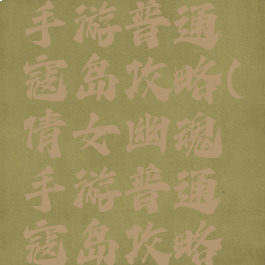 手游普通
寇岛攻略(
倩女幽魂
手游普通
寇岛攻略